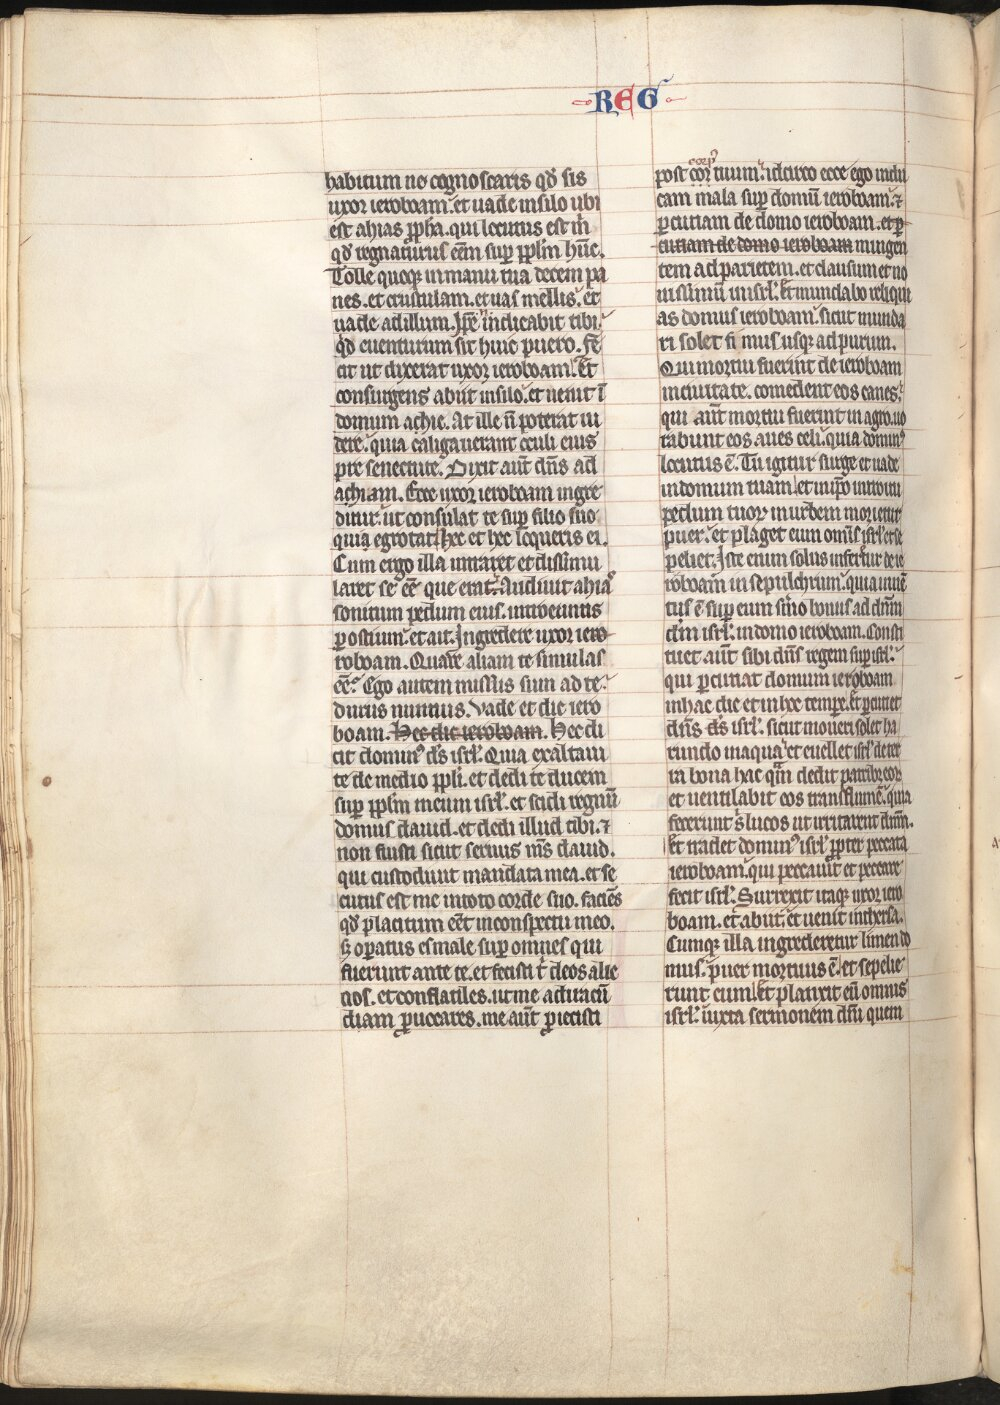 REG
habitum ne cognoscaris qd̄ sis
uxor ieroboam. et uade in silo ubi
est ahias ꝓpħa. qui locutus est m̄
qd̄ regnaturus eēm suꝑ ppl̄m hūc.
Tolle quoqꝫ in manu tua decem pa
nes. et crustulam. et uas mellis. et
uade ad illum. Ip̄e indicabit tibi.
qd̄ euenturum sit huic puero. Fe
cit ut dixerat uxor ieroboam. Et
consurgens abiit in silo. et uenit ī
domum achie. At ille ñ poterat ui
dere. quia caligauerant oculi eius
pre senectute. Dixit aūt dñs ad
achiam. Ecce uxor ieroboam ingre
ditur. ut consulat te suꝑ filio suo
quia egrotat. hec et hec loqueris ei.
Cum ergo illa intraret et dissimu
laret se eē que erat. Audiuit ahias
sonitum pedum eius. introeuntis
ꝑ ostium. et ait. Ingredere uxor iero
roboam. Quare aliam te simulas
eē. Ego autem missus sum ad te.
durus nuntius. Vade et dic iero
boam. Hec dic ieroboam. Hec di
cit dominꝰ dš isrł. Quia exaltaui
te de medio ppl̄i. et dedi te ducem
suꝑ ppl̄m meum isrł. et scidi regnū
domus dauid. et dedi illud tibi. ⁊
non fuisti sicut seruus m̄s dauid.
qui custodiuit mandata mea. et se
cutus est me in toto corde suo. faciēs
qd̄ placitum eēt in conspectu meo.
s; oꝑatus es male suꝑ omnes qui
fuerunt ante te. et fecisti t̄ deos alie
nos. et conflatiles. ut me ad iracū
diam ꝓuocares. me aūt ꝓiecisti
corpꝰ
post cor tuum. idcirco ecce ego indu
cam mala suꝑ domū ieroboam. ⁊
ꝑcutiam de domo ieroboam. et ꝑ
cutiam de domo ieroboam mingen
tem ad parietem. et clausum et no
uissimū in isrł. Et mundabo reliqui
as domus ieroboam. sicut munda
ri solet fimus usqꝫ ad purum.
Qui mortui fuerint de ieroboam
in ciuitate. comedent eos canes.
qui aūt mortui fuerint in agro. uo
rabunt eos aues celi. quia dominꝰ
locutus ē. Tu igitur surge et uade
in domum tuam. et in ip̄o introitu
pedum tuoꝝ in urbem morietur
puer. et planget eum omīs isrł. et se
peliet. Iste enim solus inferetur de ie
roboam in sepulchrum. quia inuē
tus ē suꝑ eum sermo bonus ad dnm̄
dm̄ isrł. in domo ieroboam. Consti
tuet aūt sibi dñs regem suꝑ isrł.
qui ꝑcutiat domum ieroboam
in hac die et in hoc tempe. Et ꝑcutiet
dñs dš isrł. sicut moueri solet ha
rundo in aqua. et euellet isrł de ter
ra bona hac qm̄ dedit patribꝫ eoꝝ
et uentilabit eos trans flumē. quia
fecerunt s̄ lucos ut irritarent dnm̄.
Et tradet dominꝰ isrł. ꝓpter peccata
ieroboam. qui peccauit et peccare
fecit isrł. Surrexit itaqꝫ uxor iero
boam. et abiit. et uenit in thersa.
Cumqꝫ illa ingrederetur limen do
mus. puer mortuus ē. et sepelie
runt eum. Et planxit eū omnis
isrł. iuxta sermonem dñi quem